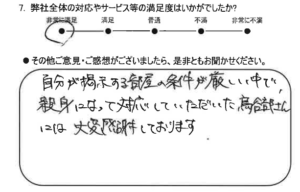 7. 弊社全体の対応やサービス等の満足度はいかがでしたか?
非常に満足 満足 普通 不満 非常に不満
● その他ご意見・ご感想がございましたら、是非ともお聞かせください。
自分が掲示する部屋の条件が厳しい中で、
親身になって対応していただいた、さん
には大変感謝しております